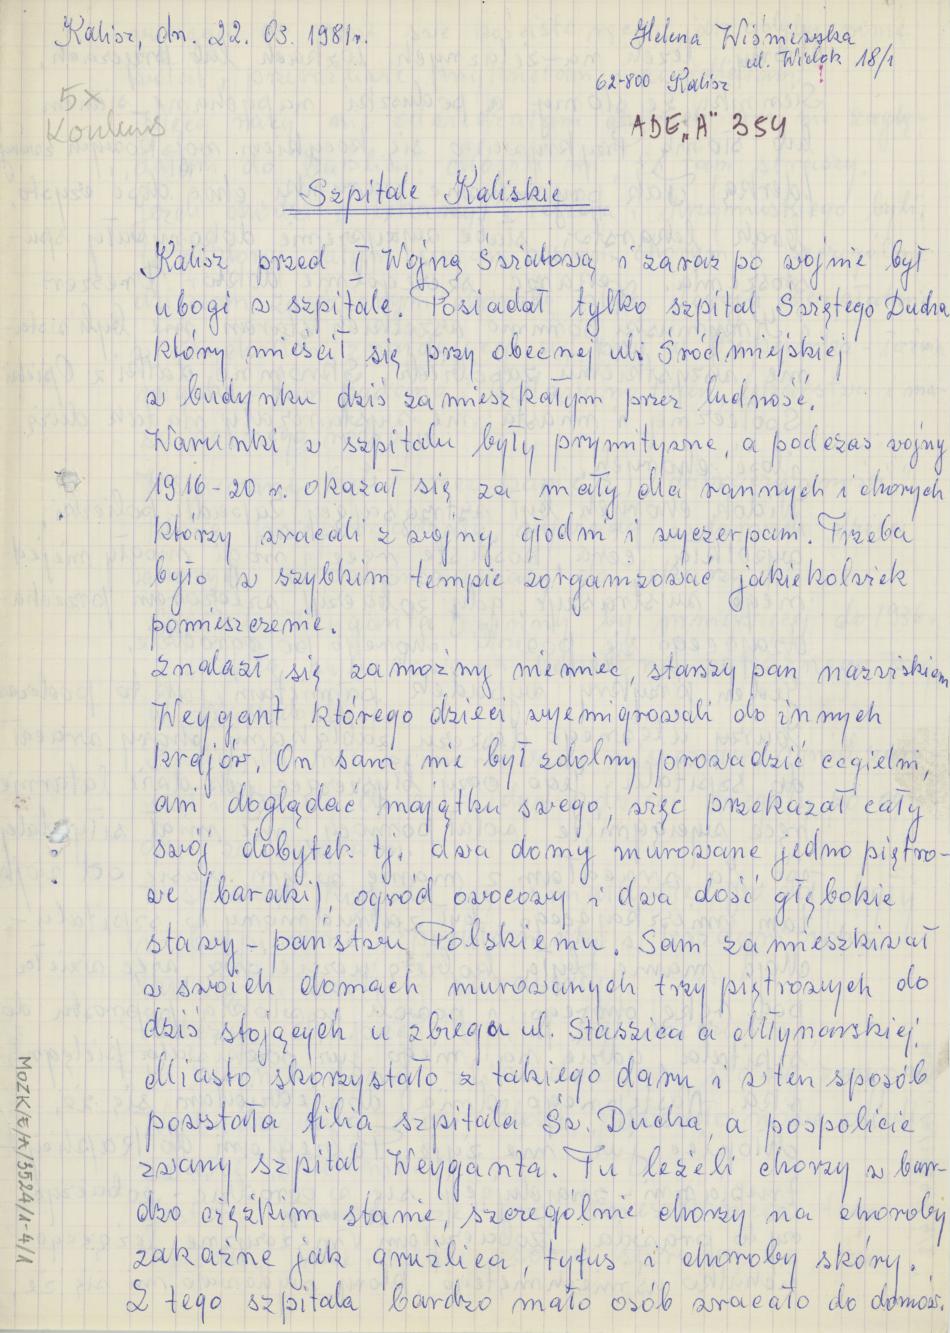 Kalisz, dn. 22. 03. 1981r.
Helena Wiśniewska
ul. Widok 18/1
62-800 Kalisz
5x
Konkurs
ADE „A" 354
Szpitale Kaliskie
Kalisz przed I Wojną Światową i zaraz po wojnie był
ubogi w szpitale. Posiadał tylko szpital Świętego Ducha
który mieścił się przy obecnej ul. Śródmiejskiej
w budynku dziś zamieszkałym przez ludność.
Warunki w szpitalu były prymitywne, a podczas wojny
1916-20 r. okazał się za mały dla rannych i chorych
którzy wracali z wojny głodni i wyczerpani. Trzeba
było w szybkim tempie zorganizować jakiekolwiek
pomieszczenie.
Znalazł się zamożny niemiec, starszy pan nazwiskiem
Weygant którego dzieci wyemigrowali do innych
krajów. On sam nie był zdolny prowadzić cegielni,
ani doglądać majątku swego, więc przekazał cały
swój dobytek tj. dwa domy murowane jedno piętro-
we (baraki), ogród owocowy i dwa dość głębokie
stawy - państwu Polskiemu. Sam zamieszkiwał
w swoich domach murowanych trzy piętrowych do
dziś stojących u zbiegu ul. Staszica a Młynarskiej.
Miasto skorzystało z takiego daru i w ten sposób
powstała filia szpitala Św. Ducha, a pospolicie
zwany szpital Weyganta. Tu leżeli chorzy w bar-
dzo ciężkim stanie, szczególnie chorzy na choroby
zakaźne jak gruźlica, tyfus i choroby skóry.
Z tego szpitala bardzo mało osób wracało do domów.
MOZK/E/A/5524/1-4/1